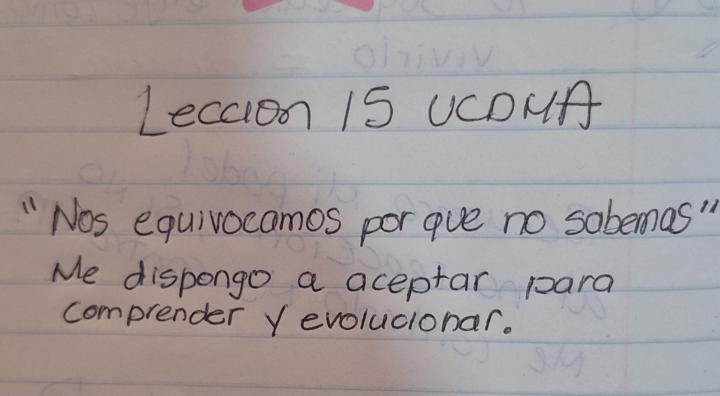 Leccion 15 UCDMA
"Nos equivocamos por que no sabemas"
Me dispongo a aceptar para
comprender y evolucionar.